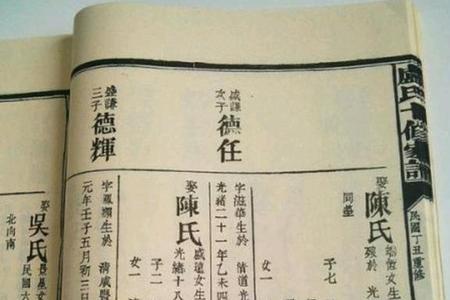 盧氏十修家譜
民國丁丑重修
娶陳氏
同塋
子七
歿於
光
盛謙次子德任
字滋華生於
清道光
光緒二十一年乙未四
女一
娶陳氏
盛遠女生
光緒十八
子二
女一
盛謙三子德輝
清咸豐
元年壬子五月初三日
娶吳氏
民國六
北向南